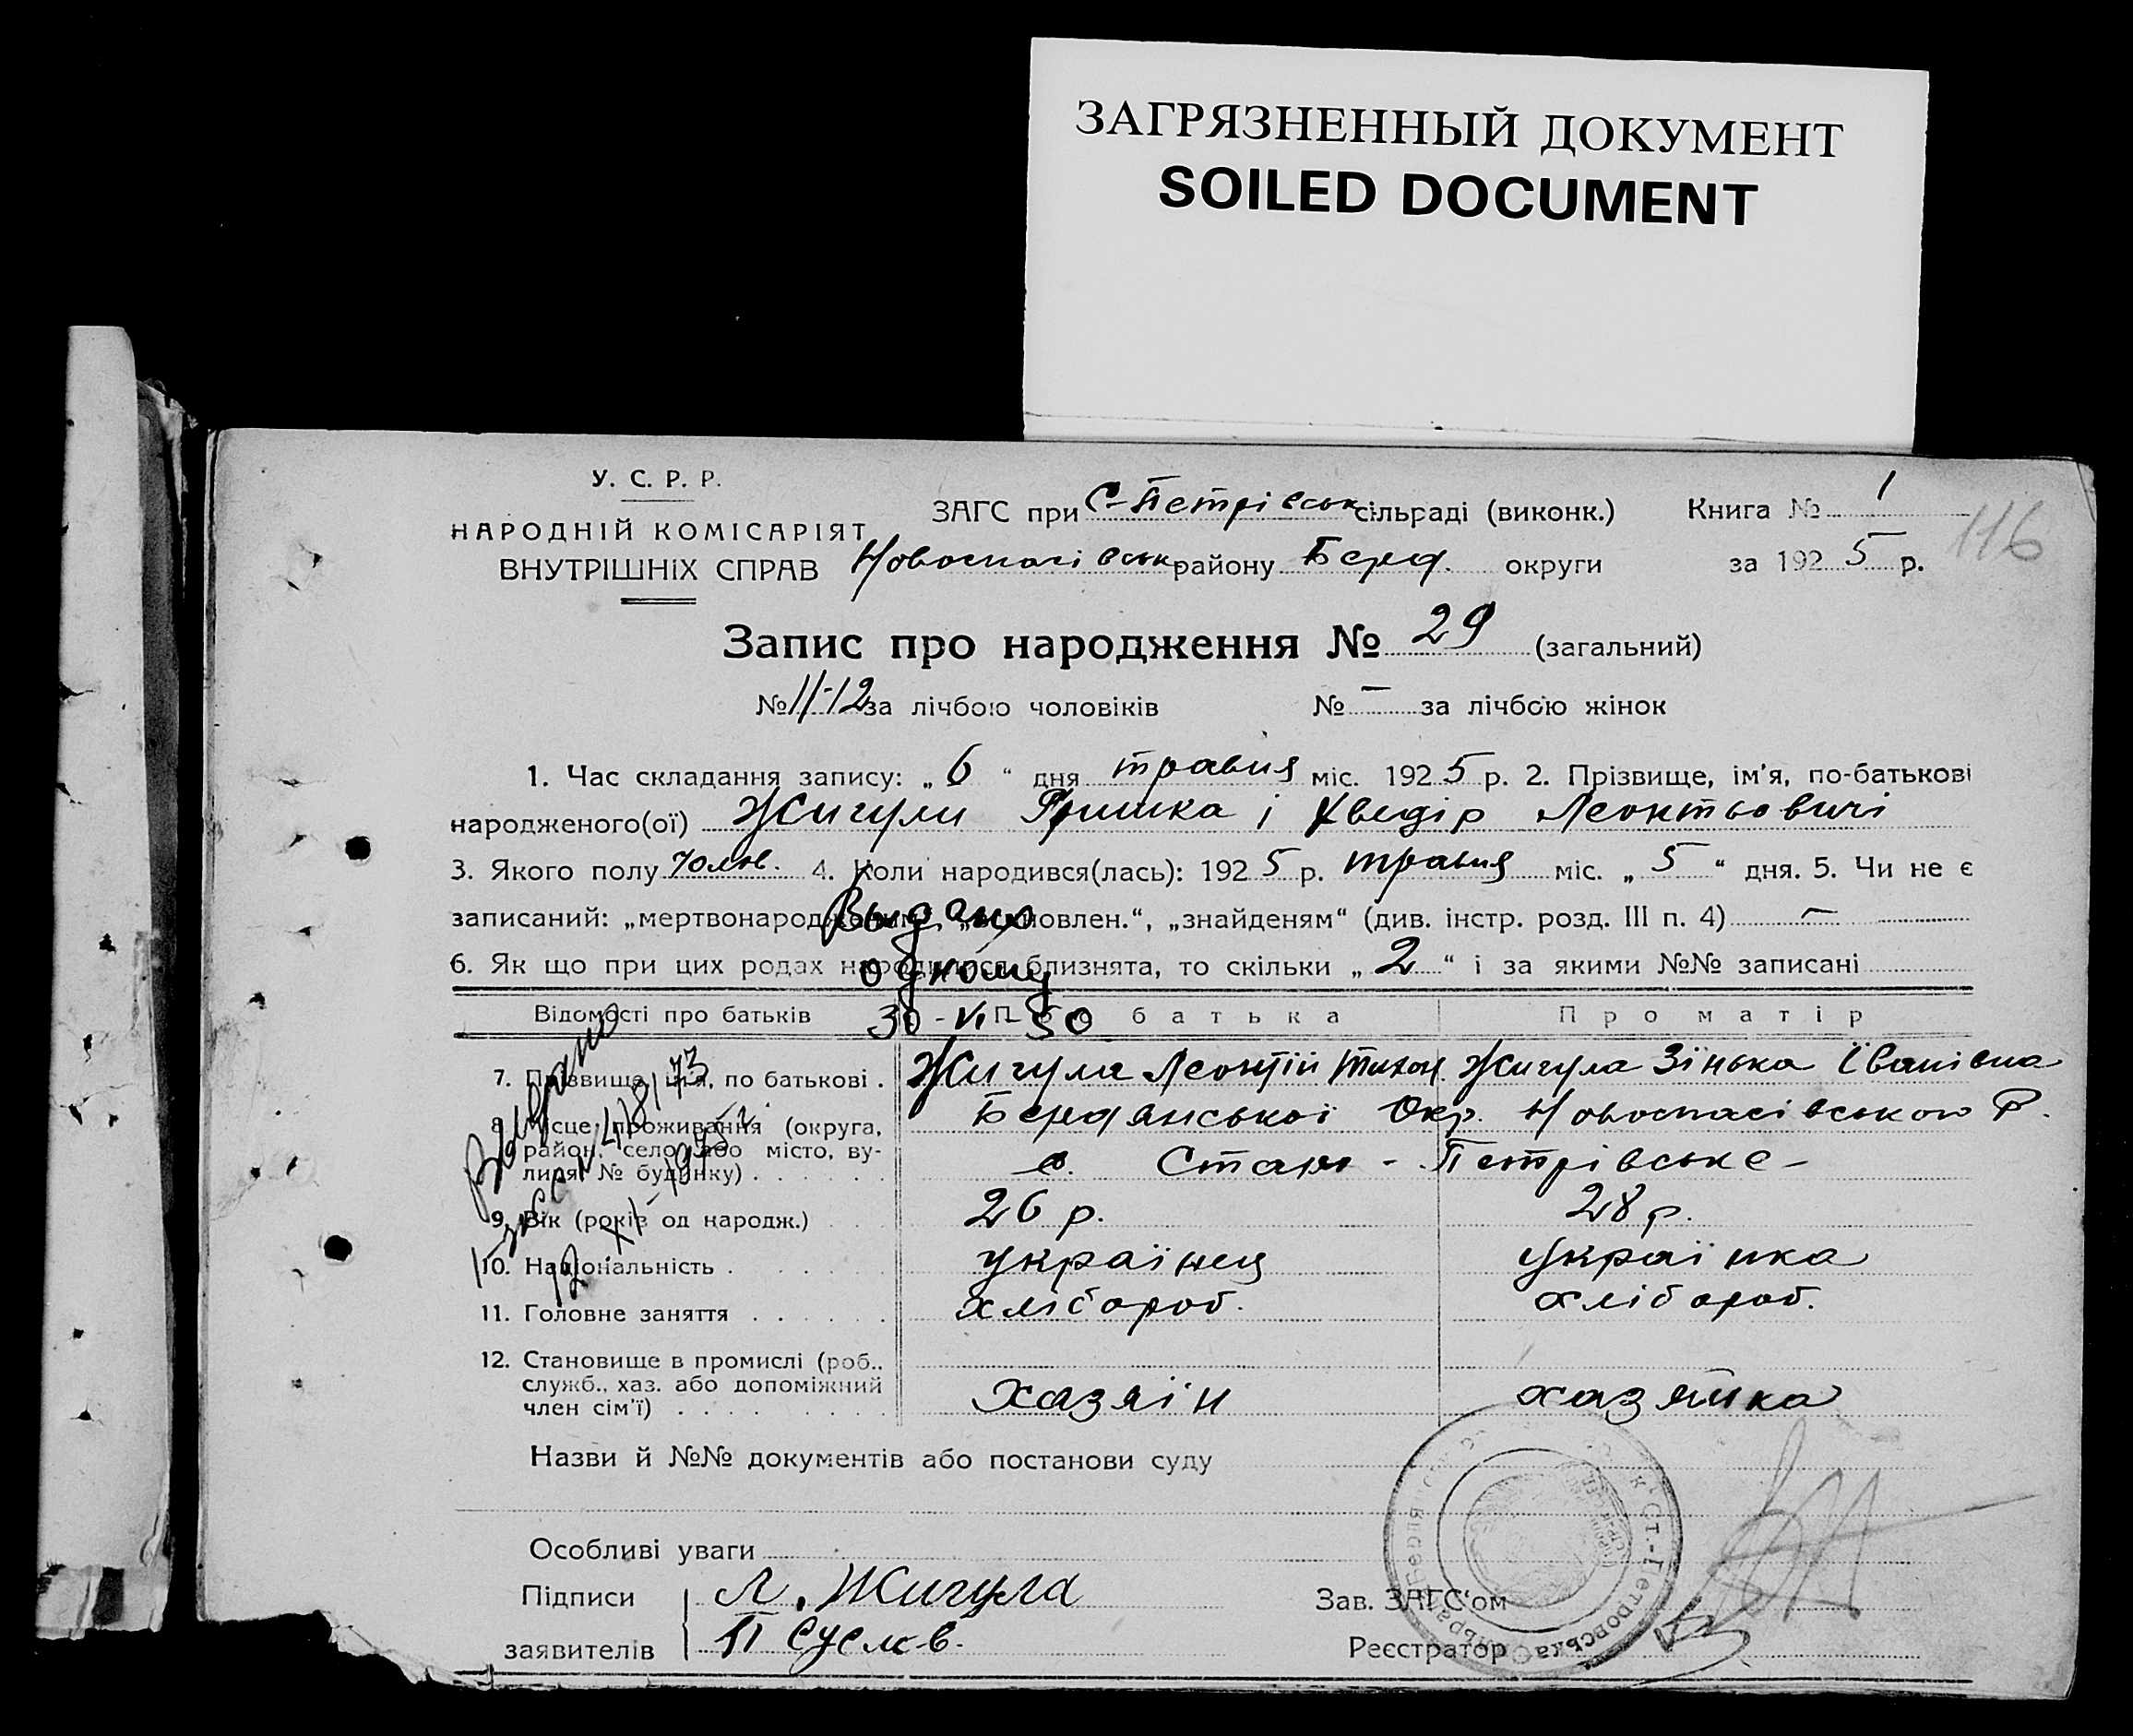 ЗАГРЯЗНЕННЫЙ ДОКУМЕНТ
SOILED DOCUMENT
У. С. Р. Р.
НАРОДНІЙ КОМІСАРІЯТ
ВНУТРІШНІХ СПРАВ
ЗАГС при С-Петрівськ. сільраді (виконк.) Книга № 1
116
Новоспасівськ. району Берд. округи за 1925 р.
Запис про народження № 29 (загальний)
№ 11-12 за лічбою чоловіків № – за лічбою жінок
1. Час складання запису: „ 6 “ дня травня міс. 1925 р. 2. Прізвище, ім'я, по-батькові
народженого(ої) Жигули Гришка і Хведір Леонтьовичі
3. Якого полу чолов. 4. Коли народився(лась): 1925 р. травня міс. „ 5 “ дня. 5. Чи не є
записаний: „мертвонароджоним“, „встановлен.“, „знайденям“ (див. інстр. розд. III п. 4) –
6. Як що при цих родах народилося близнята, то скільки „ 2 “ і за якими №№ записані
Выдано
одному
30-VI-50
Відомості про батьків Про батька Про матір
7. Прізвище, ім'я, по батькові . Жигула Леонтій Тихон. Жигула Зінька Іванівна
8. Місце проживання (округа, Бердянської Окр. Новоспасівського Р.
район, село або місто, ву-
лиця № будинку) . . . . . . с. Старо-Петрівське-
9. Вік (років од народж.) 26 р. 28 р.
10. Національність . українец українка
11. Головне заняття . . . . . . хлібороб. хлібороб.
12. Становище в промислі (роб.,
служб., хаз. або допоміжний
член сім'ї) . . . . хазяїн хазяйка
Выдрано
12 XI-1975 г.
Назви й №№ документів або постанови суду
Особливі уваги
Підписи Л. Жигула Зав. ЗАГС'ом
заявителів Реєстратор